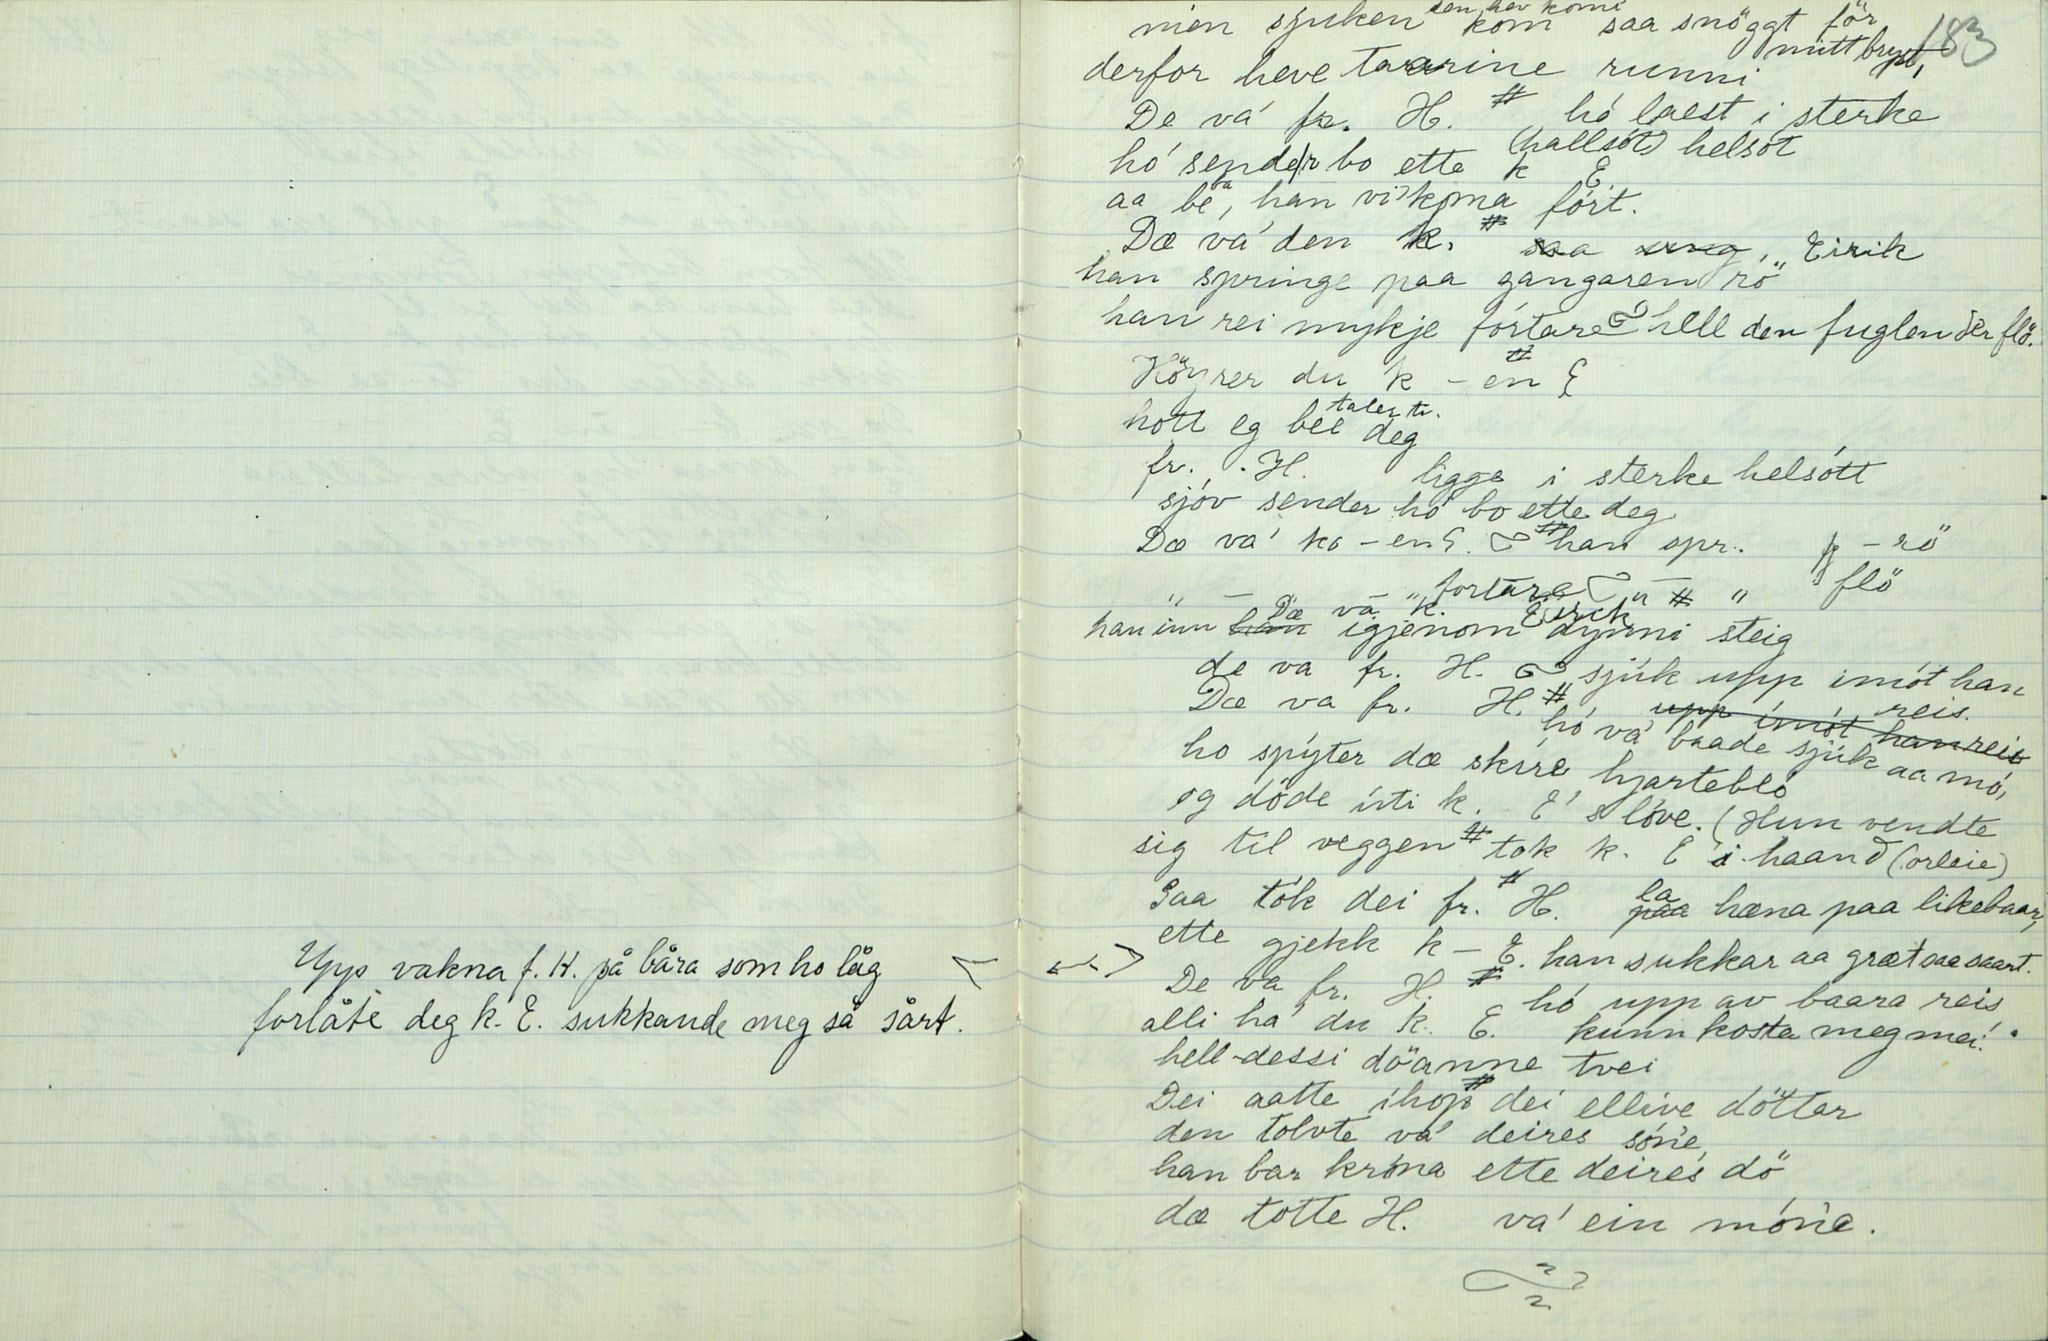 Upp vakna f. H. på båra som ho låg
forlåte deg k. E. sukkande meg så sårt.
183
den hev komi
men sjuken kom saa snöggt för
mitt bryst,
derfor heve taarine runni
De vá fr. H. # hó laest i sterke
(hallsót) helsót
hó sender bo ette k E
aa bea, han vi koma fórt.
Dæ vá den k. # saa ung, „ Eirik
han springe paa gangaren rö
han rei mykje fórtare hell den fuglen der flö.
Höyrer du k – en # E
taler ti.
hott eg bee deg
fr. H. ligge i sterke helsótt
sjóv sender hó bo ette deg
Dæ vá ko – en E. # han spr. g – rö
„ – – „ fortare „ # „ flö
Dæ vá k. Eirik
han inn han igjenom dynni steig
de va fr. H. sjúk upp imót han
reis.
Dæ va fr. H. # upp imót han reis
hó vá baade sjúk aa mó,
ho spýter dæ skíre hjartebló
og döde úti k. E's lóve. (Hun vendte
sig til veggen # tok k. E i haand (orleie)
Saa tók dei fr. # H. la paa hæna paa likebaar,
ette gjekk k – E. han sukkar aa græt saa saart.
De va fr. H. # hó upp av baara reis
alli há du k. E. kunn kosta meg mei!
hell dessi döanne tvei
Dei aatte ihop # dei ellive döttar
den tolvte vá deires sóne
han bar króna ette deires dö
dæ totte H. vá ein móne.